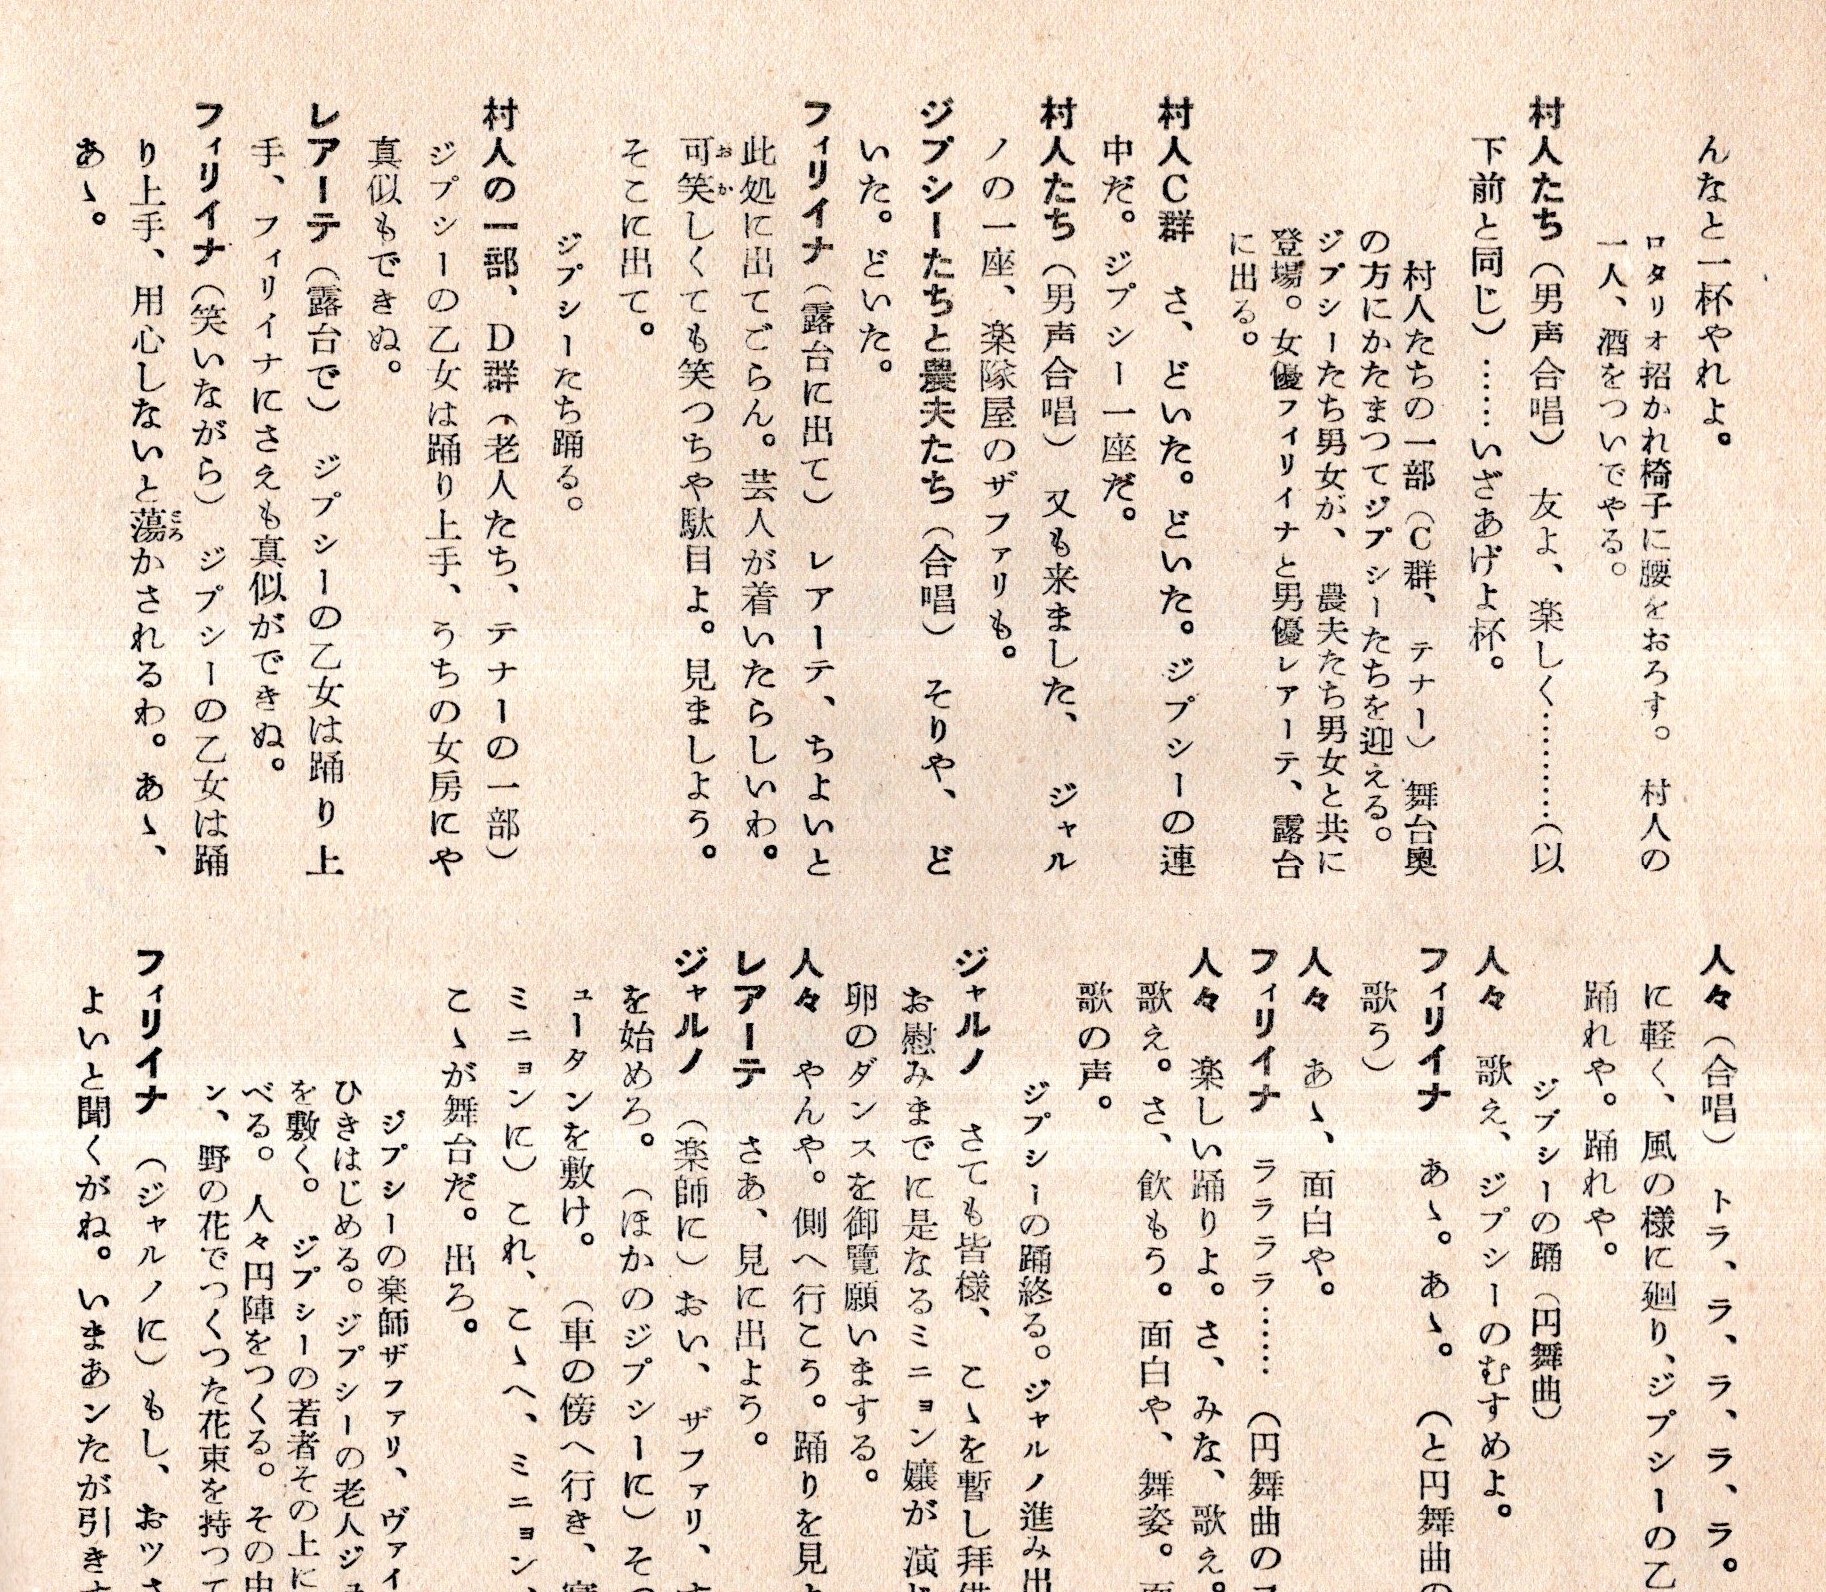 んなと一杯やれよ。
ロタリオ招かれ椅子に腰をおろす。　村人の
一人、酒をついでやる。
村人たち（男声合唱）　友よ、楽しく………（以
下前と同じ）……いざあげよ杯。
村人たちの一部（Ｃ群、テナー）舞台奥
の方にかたまつてジプシーたちを迎える。
ジプシーたち男女が、農夫たち男女と共に
登場。女優フィリイナと男優レアーテ、露台
に出る。
村人Ｃ群　さ、どいた。どいた。ジプシーの連
中だ。ジプシー一座だ。
村人たち（男声合唱）　又も来ました、　ジャル
ノの一座、楽隊屋のザファリも。
ジプシーたちと農夫たち（合唱）　そりや、　ど
いた。どいた。
フィリイナ（露台に出て）　レアーテ、ちよいと
此処に出てごらん。芸人が着いたらしいわ。
可笑しくても笑つちや駄目よ。見ましよう。
そこに出て。
ジプシーたち踊る。
村人の一部、Ｄ群（老人たち、テナーの一部）
ジプシーの乙女は踊り上手、うちの女房にや
真似もできぬ。
レアーテ（露台で）　ジプシーの乙女は踊り上
手、フィリイナにさえも真似ができぬ。
フィリイナ（笑いながら）　ジプシーの乙女は踊
り上手、用心しないと蕩かされるわ。あゝ、
あゝ。
人々（合唱）　トラ、ラ、ラ、ラ、ラ。
に軽く、風の様に廻り、ジプシーの乙
踊れや。踊れや。
ジプシーの踊（円舞曲）
人々　歌え、ジプシーのむすめよ。
フィリイナ　あゝ。あゝ。　（と円舞曲の
歌う）
人々　あゝ、面白や。
フィリイナ　ララララ……　（円舞曲の
人々　楽しい踊りよ。さ、みな、歌え。
歌え。さ、飲もう。面白や、舞姿。面
歌の声。
ジプシーの踊終る。ジャルノ進み出
ジャルノ　さても皆様、　こゝを暫し拝借
お慰みまでに是なるミニョン嬢が　演じ
卵のダンスを御覧願いまする。
人々　やんや。側へ行こう。踊りを見よ
レアーテ　さあ、見に出よう。
ジャルノ　（楽師に）おい、ザファリ、す
を始めろ。　（ほかのジプシーに）その
ュータンを敷け。　（車の傍へ行き、寝
ミニョンに）これ、こゝへ、ミニョン、
こゝが舞台だ。出ろ。
ジプシーの楽師ザファリ、ヴァイ
ひきはじめる。ジプシーの老人ジュ
を敷く。　ジプシーの若者その上に
べる。人々円陣をつくる。その中
ン、野の花でつくつた花束を持つて
フィリイナ　（ジャルノに）もし、おッさ
よいと聞くがね。いまあンたが引きず